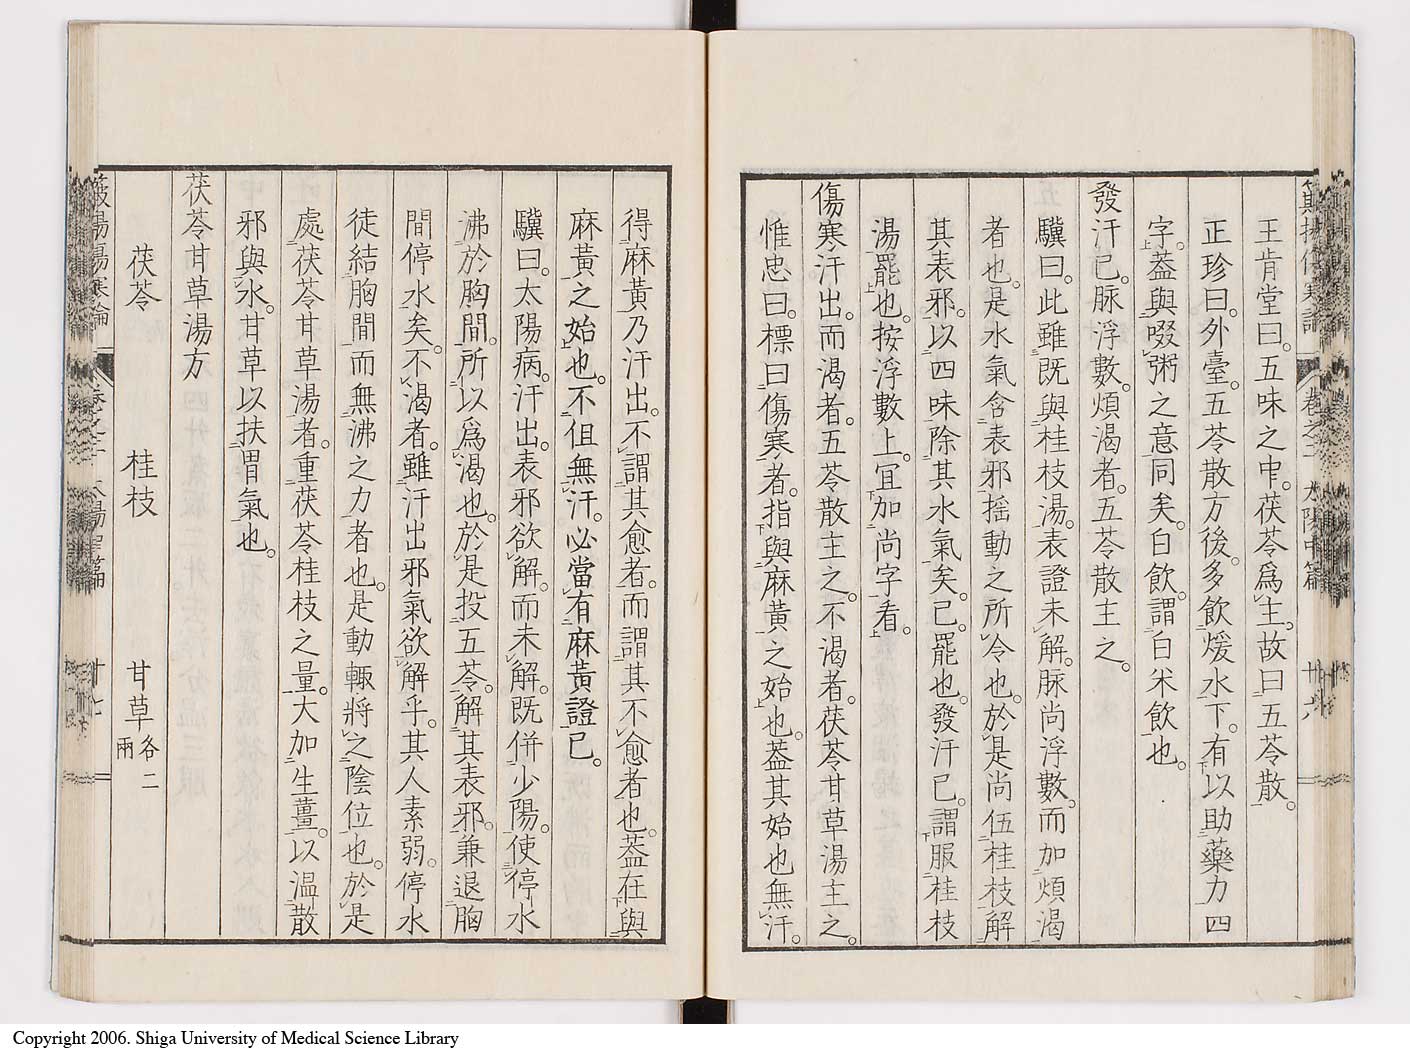 王肯堂曰。五味之中。茯苓爲主。故曰五苓散。
正珍曰。外臺。五苓散方後。多飲煖水下。有以助藥力四
字。蓋與啜粥之意同矣。白飲。謂白米飲也。
發汗已。脈浮數。煩渴者。五苓散主之。
驥曰。此雖既與桂枝湯。表證未解。脈尚浮數。而加煩渴
者也。是水氣含表邪搖動之所令也。於是尚伍桂枝解
其表邪。以四味除其水氣矣。已。罷也。發汗已。謂服桂枝
湯罷也。按浮數上。宜加尚字看。
傷寒汗出。而渴者。五苓散主之。不渴者。茯苓甘草湯主之。
惟忠曰。標曰傷寒者。指與麻黃之始也。蓋其始也無汗。
得麻黃乃汗出。不謂其愈者。而謂其不愈者也。蓋在與
麻黃之始也。不但無汗。必當有麻黃證已。
驥曰。太陽病。汗出。表邪欲解。而未解。既併少陽。使停水
沸於胸間。所以爲渴也。於是投五苓。解其表邪。兼退胸
間停水矣。不渴者。雖汗出邪氣欲解乎。其人素弱。停水
徒結胸間而無沸之力者也。是動輙將之陰位也。於是
處茯苓甘草湯者。重茯苓桂枝之量。大加生薑。以溫散
邪與水。甘草以扶胃氣也。
茯苓甘草湯方
茯苓 桂枝 甘草各二兩
傷寒論 太陽中篇 廿七
Copyright 2006. Shiga University of Medical Science Library